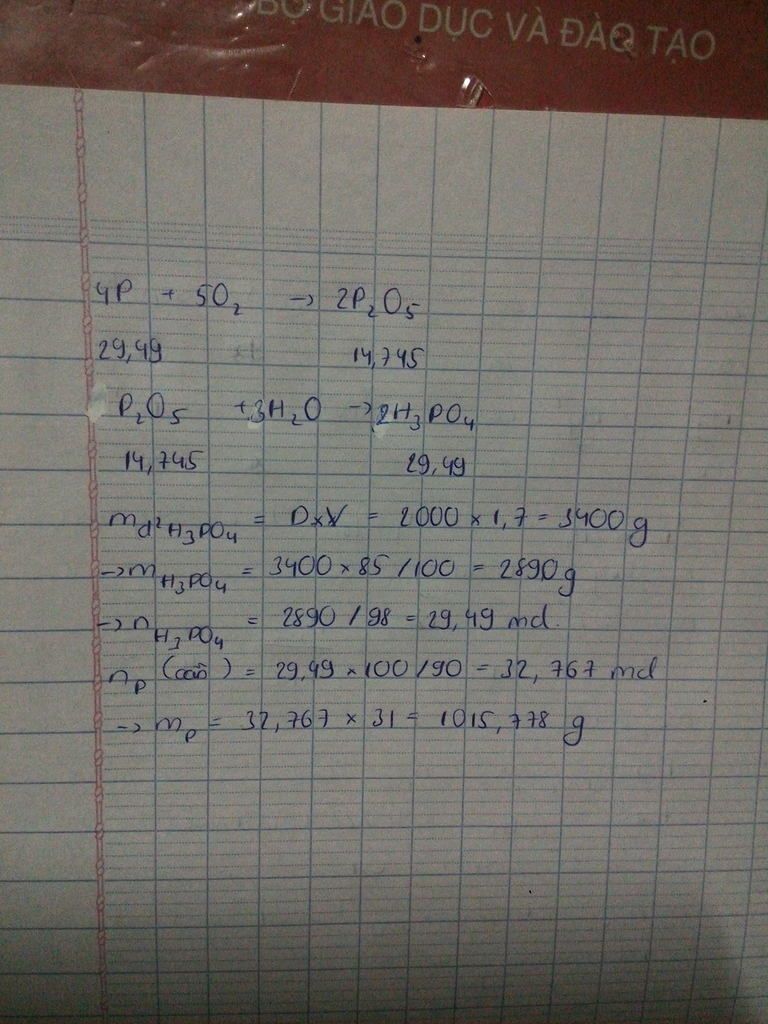 BỘ GIÁO DỤC VÀ ĐÀO TẠO
4P + 5O₂ → 2P₂O₅
29,49 14,745
P₂O₅ + 3H₂O → 2H₃PO₄
14,745 29,49
m d² H₃PO₄ = D×V = 2000 × 1,7 = 3400 g
→ m H₃PO₄ = 3400 × 85 / 100 = 2890 g
→ n H₃PO₄ = 2890 / 98 = 29,49 mol.
n P (cần) = 29,49 × 100 / 90 = 32,767 mol
→ m P = 32,767 × 31 = 1015,778 g